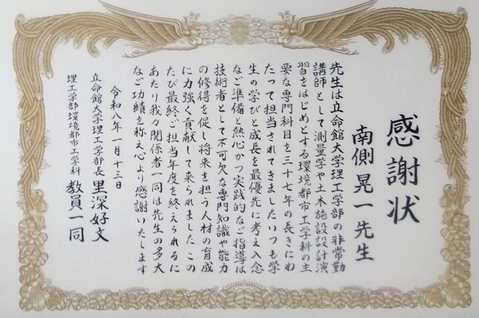 感謝状
南側晃一先生
先生は立命館大学理工学部の非常勤
講師として測量学や土木施設設計演
習をはじめとする環境都市工学科の主
要な専門科目を三十七年の長きにわ
たって担当されてきましたいつも学
生の学びと成長を最優先に考え入念
なご準備と熱心かつ実践的なご指導は
技術者として不可欠な専門知識や能力
の修得を促し将来を担う人材の育成
に力強く貢献して来られましたこの
たび最終ご担当年度を終えられるに
あたり我々関係者一同は先生の多大
なご功績を称え心より感謝いたします
令和八年一月十三日
立命館大学理工学部長 里深好文
理工学部環境都市工学科 教員一同